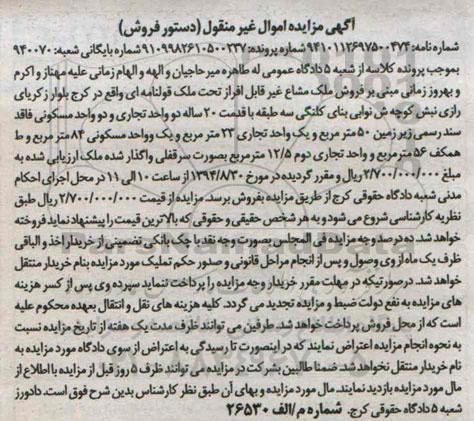 آگهی مزایده اموال غیر منقول (دستور فروش)
شماره نامه: ۹۴۱۰۱۱۲۶۹۷۵۰۰۴۷۴ شماره پرونده: ۹۱۰۹۹۸۲۶۱۰۵۰۰۲۳۷ شماره بایگانی شعبه: ۹۴۰۰۷۰
بموجب پرونده کلاسه از شعبه ۵ دادگاه عمومی له طاهره میرحاجیان و الهه و الهام زمانی علیه مهناز و اکرم
و بهروز زمانی مبنی بر فروش ملک مشاع غیر قابل افراز تحت ملک قولنامه ای واقع در کرج بلوار زکریای
رازی نبش کوچه ش نوابی بنای کلنگی سه طبقه با قدمت ۲۰ ساله دو واحد تجاری و دو واحد مسکونی فاقد
سند رسمی زیر زمین ۵۰ متر مربع و یک واحد تجاری ۲۳ متر مربع و یک و واحد مسکونی ۸۴ متر مربع و ط
همکف ۵۶ متر مربع و واحد تجاری دوم ۱۲/۵ متر مربع بصورت سرقفلی واگذار شده ملک ارزیابی شده به
مبلغ ۲/۷۰۰/۰۰۰/۰۰۰ ریال و مقرر گردیده در مورخ ۱۳۹۴/۸/۳۰ از ساعت ۱۰ الی ۱۱ در محل اجرای احکام
مدنی شعبه دادگاه حقوقی کرج از طریق مزایده بفروش برسد. مزایده از قیمت ۲/۷۰۰/۰۰۰/۰۰۰ ریال طبق
نظریه کارشناسی شروع می شود و به هر شخص حقیقی و حقوقی که بالاترین قیمت را پیشنهاد نماید فروخته
خواهد شد. ده درصد وجه مزایده فی المجلس بصورت وجه نقد یا چک بانکی تضمینی از خریدار اخذ و الباقی
ظرف یک ماه از وی وصول و پس از انجام مراحل قانونی و صدور حکم تملیک مورد مزایده بنام خریدار منتقل
خواهد شد. درصورتیکه در مهلت مقرر خریدار وجه مزایده را پرداخت ننماید سپرده وی پس از کسر هزینه
های مزایده به نفع دولت ضبط و مزایده تجدید می گردد. کلیه هزینه های نقل و انتقال بعهده محکوم علیه
است که از محل فروش پرداخت خواهد شد. طرفین می توانند ظرف مدت یک هفته از تاریخ مزایده نسبت
به نحوه انجام مزایده اعتراض نمایند که در اینصورت تا رسیدگی به اعتراض از سوی دادگاه مورد مزایده به
نام خریدار منتقل نخواهد شد. ضمنا طالبین بشرکت در مزایده می توانند ظرف ۵ روز قبل از مزایده با اطلاع از
مال مورد مزایده بازدید نمایند. مال مورد مزایده و بهای آن طبق نظر کارشناس بدین شرح فوق است. دادورز
شعبه ۵ دادگاه حقوقی کرج. شماره م/الف ۲۶۵۳۰